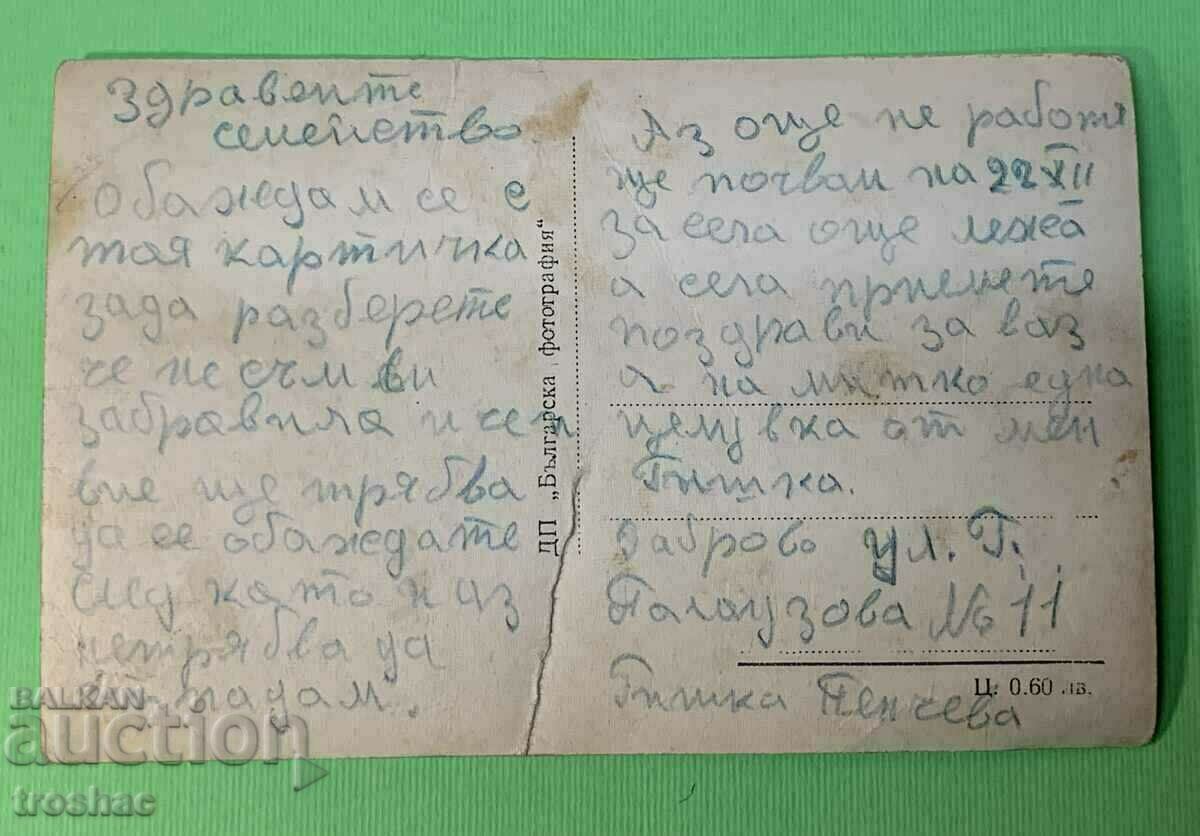 Здравейте
семейство
обаждам се с
тая картичка
зада разберете
че не съм ви
забравила и че и
вие ще трябва
да се обаждате
след като и аз
нетрябва да
падам.
ДП „Българска фотография“
Аз още не работя
ще почвам на 22 XII
за сега още лежа
а сега приемете
поздрави за ваз
а на митко една
целувка от мен
Гишка.
Габрово ул. Г.
Палаузова № 11
Ц. 0.60 лв.
Гишка Пенчева
BALKAN
auction
troshac